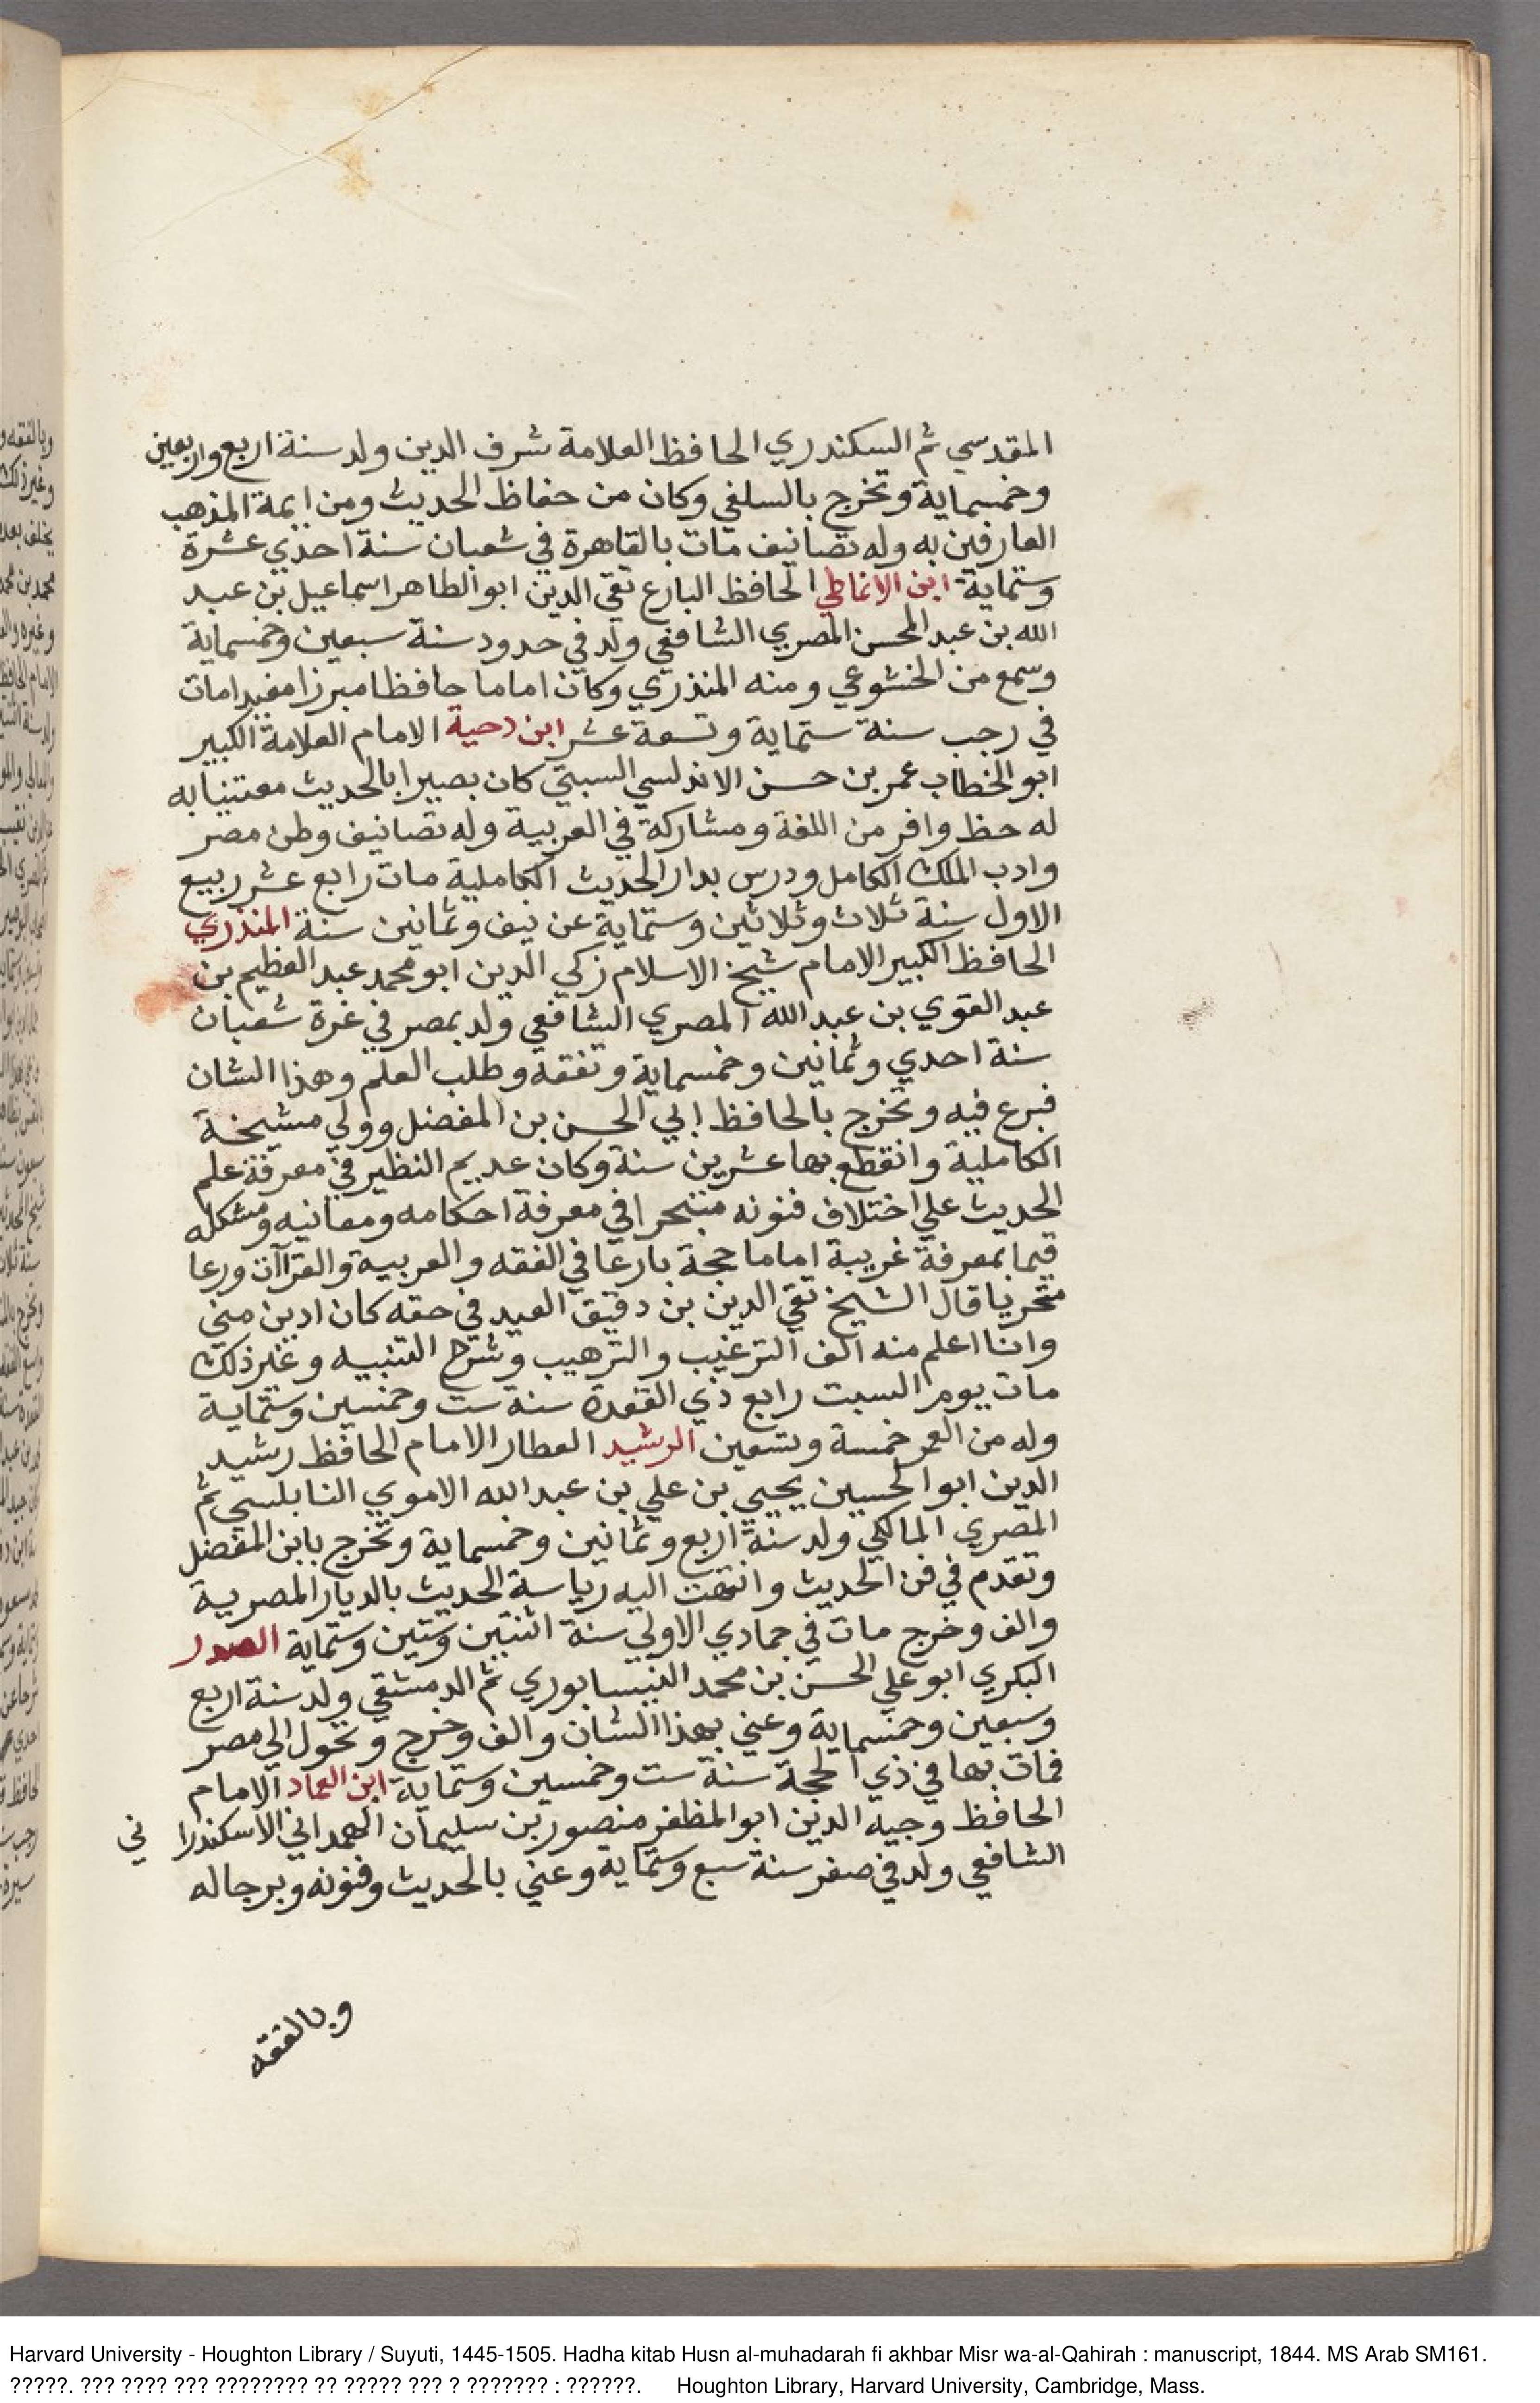 المقدسي ثم السكندري الحافظ العلامة شرف الدين ولد سنة اربع واربعين
وخمسماية وتخرج بالسلفي وكان من حفاظ الحديث ومن ايمة المذهب
العارفين به وله تصانيف مات بالقاهرة في شعبان سنة احدي عشرة
وستماية ابن الانماطي الحافظ البارع تقي الدين ابو الطاهر اسماعيل بن عبد
الله بن عبد المحسن المصري الشافعي ولد في حدود سنة سبعين وخمسماية
وسمع من الخشوعي ومنه المنذري وكان اماما حافظا مبرزا مفيدا مات
في رجب سنة ستماية وتسعة عشر ابن دحية الامام العلامة الكبير
ابو الخطاب عمر بن حسن الاندلسي السبتي كان بصيرا بالحديث معتنيا به
له حظ وافر من اللغة ومشاركة في العربية وله تصانيف وطن مصر
وادب الملك الكامل ودرس بدار الحديث الكاملية مات رابع عشر ربيع
الاول سنة ثلاث وثلاثين وستماية عن نيف وثمانين سنة المنذري
الحافظ الكبير الامام شيخ الاسلام زكي الدين ابو محمد عبد العظيم بن
عبد القوي بن عبد الله المصري الشافعي ولد بمصر في غرة شعبان
سنة احدي وثمانين وخمسماية وتفقه وطلب العلم وهذا الشان
فبرع فيه وتخرج بالحافظ ابي الحسن بن المفضل وولي مشيخة
الكاملية وانقطع بها عشرين سنة وكان عديم النظير في معرفة علم
الحديث علي اختلاف فنونه متبحرا في معرفة احكامه ومعانيه ومشكله
قيما بمعرفة غريبة اماما حجة بارعا في الفقه والعربية والقراآن ورعا
متحريا قال الشيخ تقي الدين بن دقيق العيد في حقه كان ادين مني
وانا اعلم منه الف الترغيب والترهيب وشرح التنبيه وغير ذلك
مات يوم السبت رابع ذي القعدة سنة ست وخمسين وستماية
وله من العمر خمسة وتسعين الرشيد العطار الامام الحافظ رشيد
الدين ابو الحسين يحيي بن علي بن عبد الله الاموي النابلسي ثم
المصري المالكي ولد سنة اربع وثمانين وخمسماية وتخرج بابن المفضل
وتقدم في فن الحديث وانتهت اليه رياسة الحديث بالديار المصرية
والف وخرج مات في جمادي الاولي سنة اثنتين وستين وستماية الصدر
البكري ابو علي الحسن بن محمد النيسابوري ثم الدمشقي ولد سنة اربع
وسبعين وخمسماية وعني بهذا الشان والف وخرج وتحول الي مصر
فمات بها في ذي الحجة سنة ست وخمسين وستماية ابن العماد الامام
الحافظ وجيه الدين ابو المظفر منصور بن سليمان الهمداني الاسكندرا ني
الشافعي ولد في صفر سنة سبع وستماية وعني بالحديث وفنونه وبرجاله
وبالفقه
Harvard University - Houghton Library / Suyuti, 1445-1505. Hadha kitab Husn al-muhadarah fi akhbar Misr wa-al-Qahirah : manuscript, 1844. MS Arab SM161.
?????. ??? ???? ??? ???????? ?? ????? ??? ? ??????? : ??????. Houghton Library, Harvard University, Cambridge, Mass.